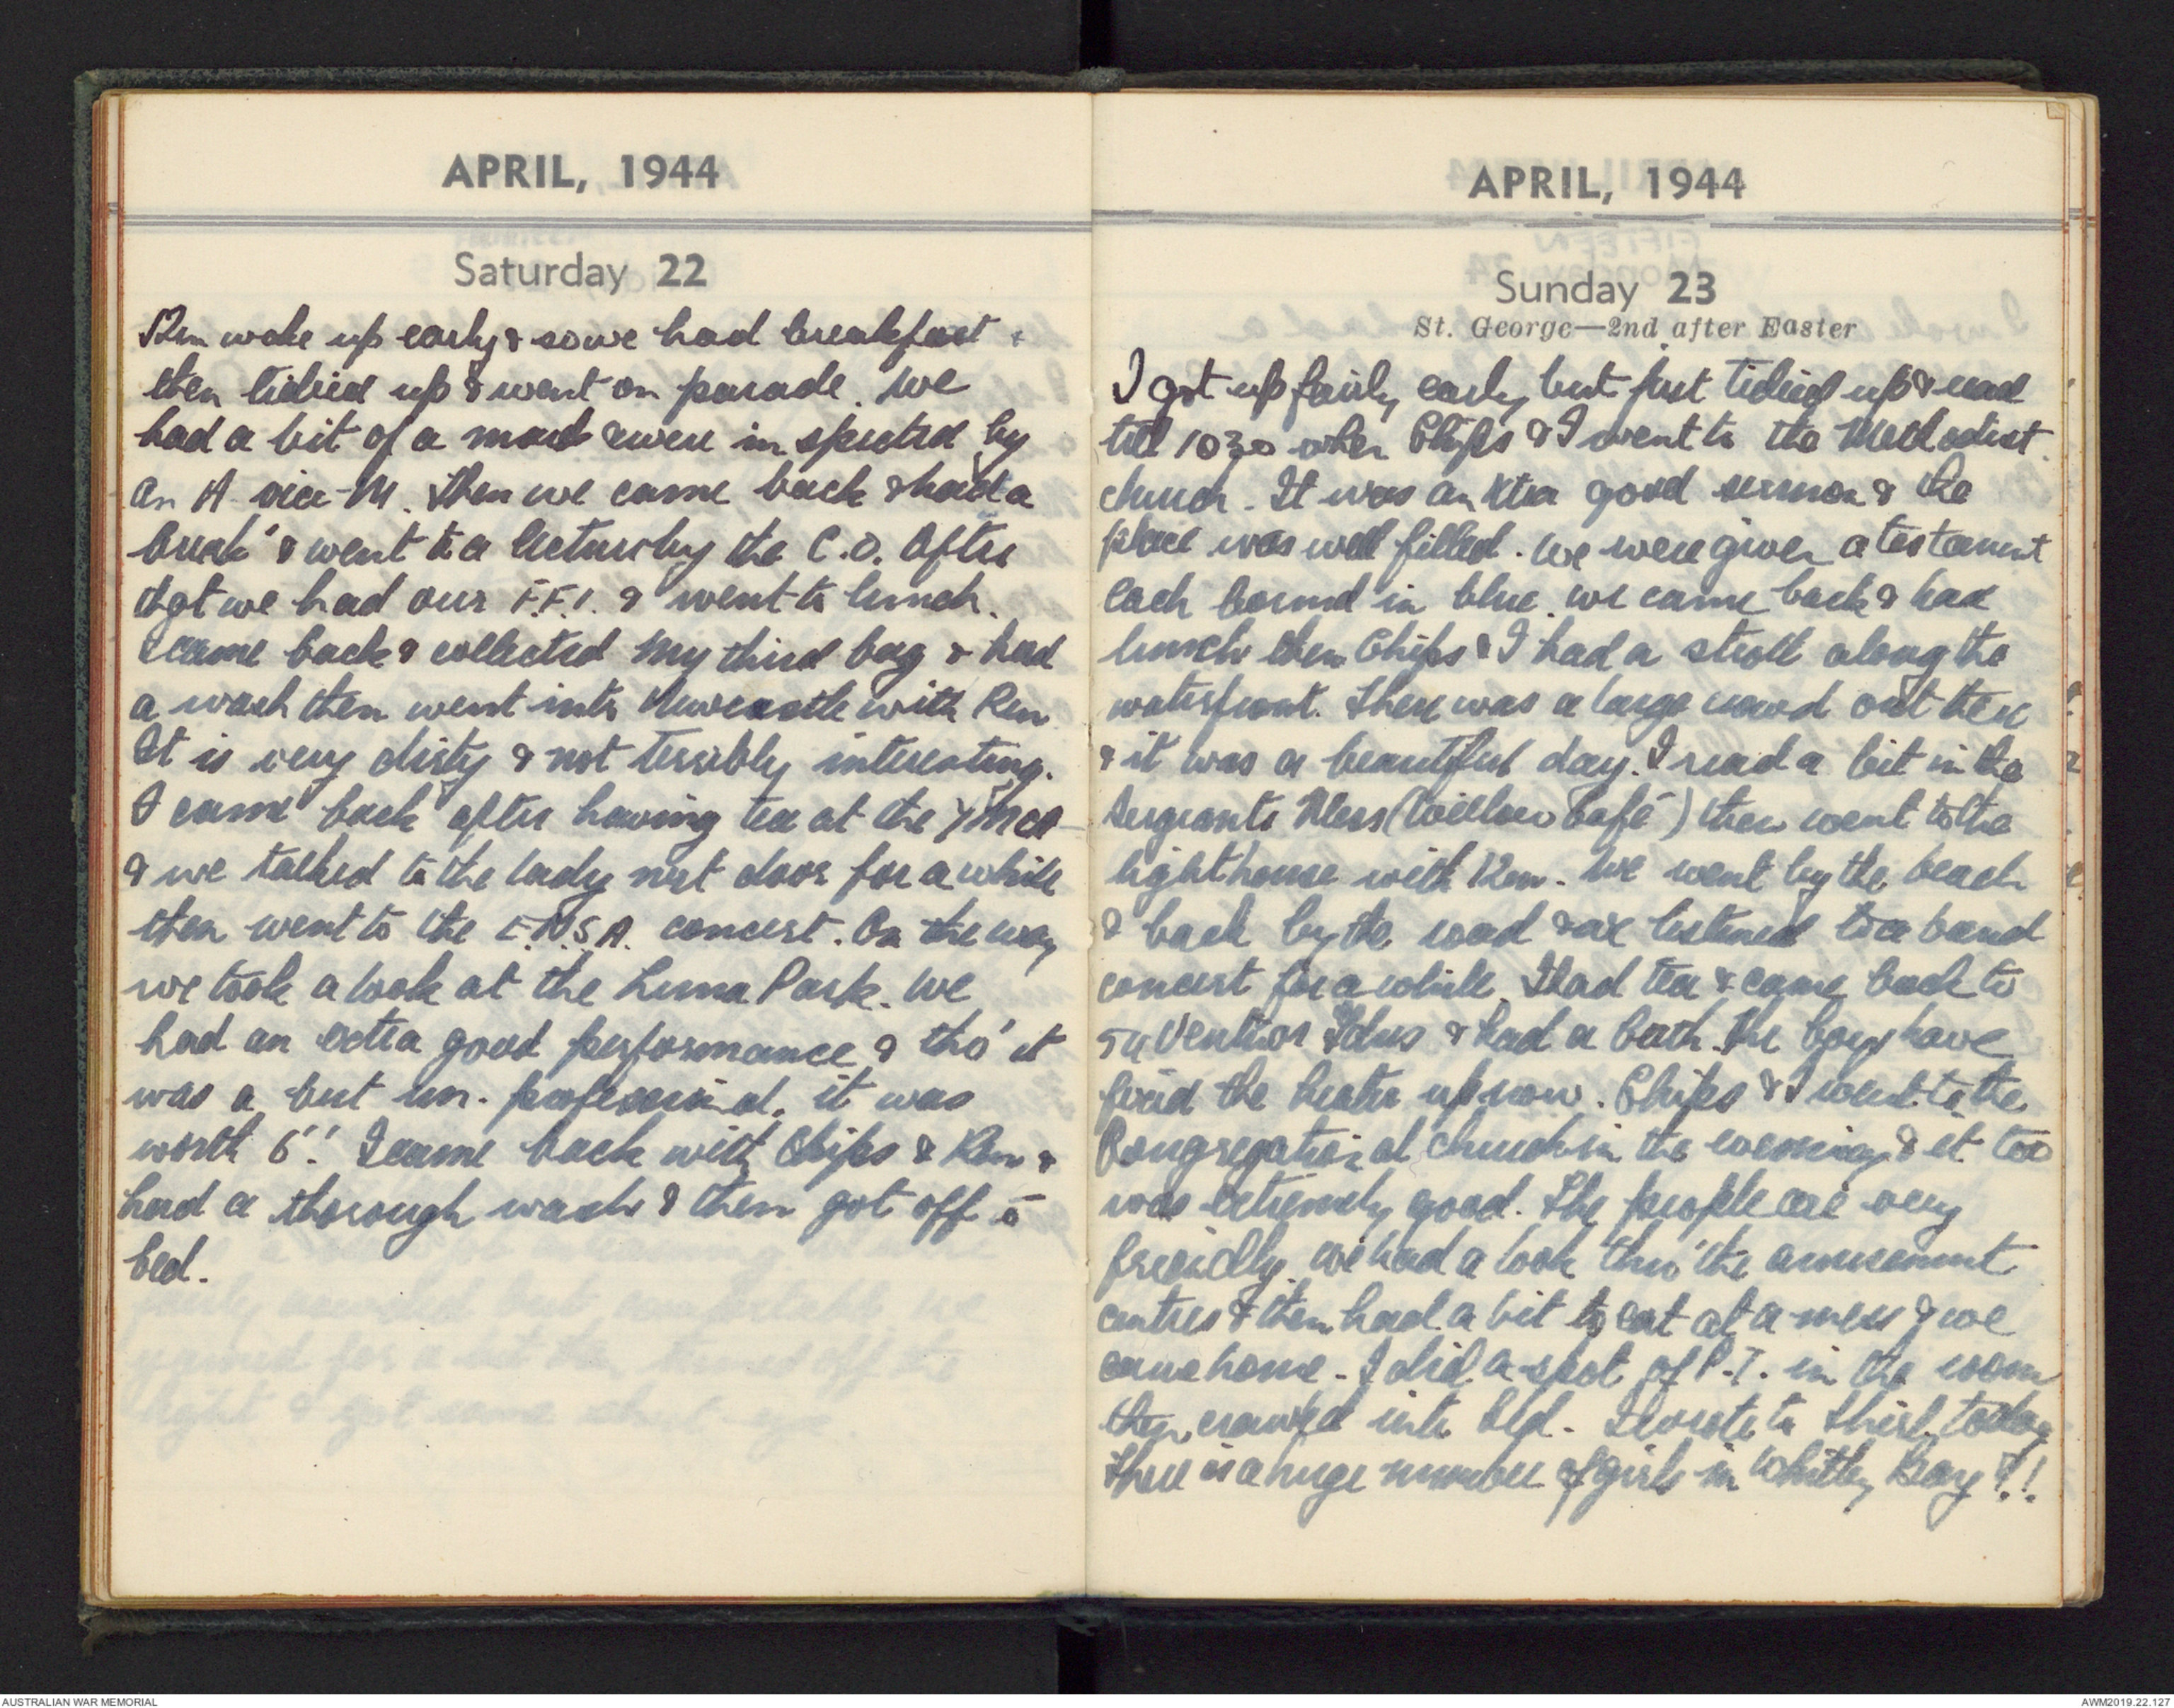 APRIL, 1944
Saturday 22
Ken woke up early & so we had breakfast &
then tidied up & went on parade. We
had a bit of a march & were in spected by
an A. vice-M. Then we came back & had a
break' & went to a lecture by the C.O. After
that we had our F.F.I. & went to lunch.
I came back & collected my third bag & had
a wash then went into Newcastle with Ken
It is very dirty & not terribly interesting.
I came back after having tea at the YMCA
& we talked to the lady next door for a while
then went to the E.N.S.A. concert. On the way
we took a look at the Luna Park. We
had an extra good performance & tho' it
was a bit un-professional, it was
worth 6'! I came back with Chips & Ken &
had a thorough wash & then got off to
bed.
APRIL, 1944
Sunday 23
St. George—2nd after Easter
I got up fairly early but just tidied up & read
till 1030 when Chips & I went to the Methodist
church. It was an Xtra good sermon & the
place was well filled. We were given a testament
each bound in blue. We came back & had
lunch then Chips & I had a stroll along the
waterfront. There was a large crowd out there
& it was a beautiful day. I read a bit in the
Sergeants Mess (Willow Café) then went to the
lighthouse with Ken. We went by the beach
& back by the road & we listened to a band
concert for a while. Had tea & came back to
54 Ventnor Gdns & had a bath. The boys have
fixed the heater up now. Chips & I went to the
Congregational church in the evening & it too
was extremely good. The people are very
friendly. We had a look thro' the amusement
centres & then had a bit to eat at a mess & we
came home. I did a spot of P.T. in the room
then crawled into bed. I wrote to Shirl today
There is a huge number of girls in Whitley Bay!!
AUSTRALIAN WAR MEMORIAL
AWM2019.22.127